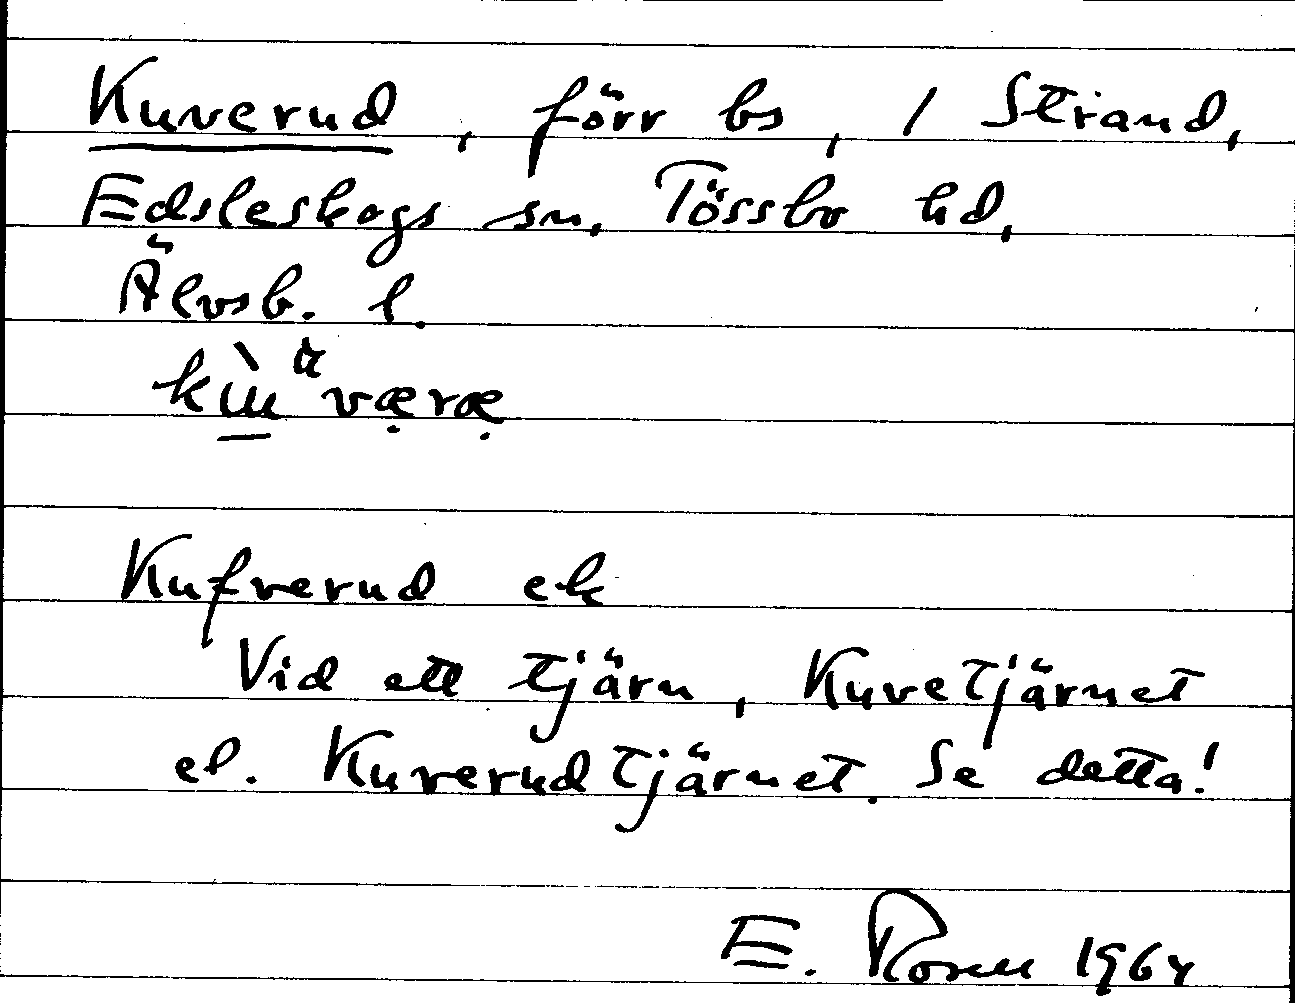 Kuverud, förr bs, / Strand,
Edsleskogs sn, Tössbo hd,
Älvsb. l.
Kufverud ek
Vid ett tjärn, Kuvetjärnet
el. Kuverudtjärnet. Se detta!
E. Rosell 1964